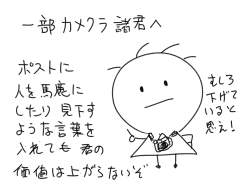 一部カメクラ諸君へ
ポストに
人を馬鹿に
したり 見下す
ような言葉を
入れても 君の
価値は上がらないぞ
むしろ
下げて
いると
思え!